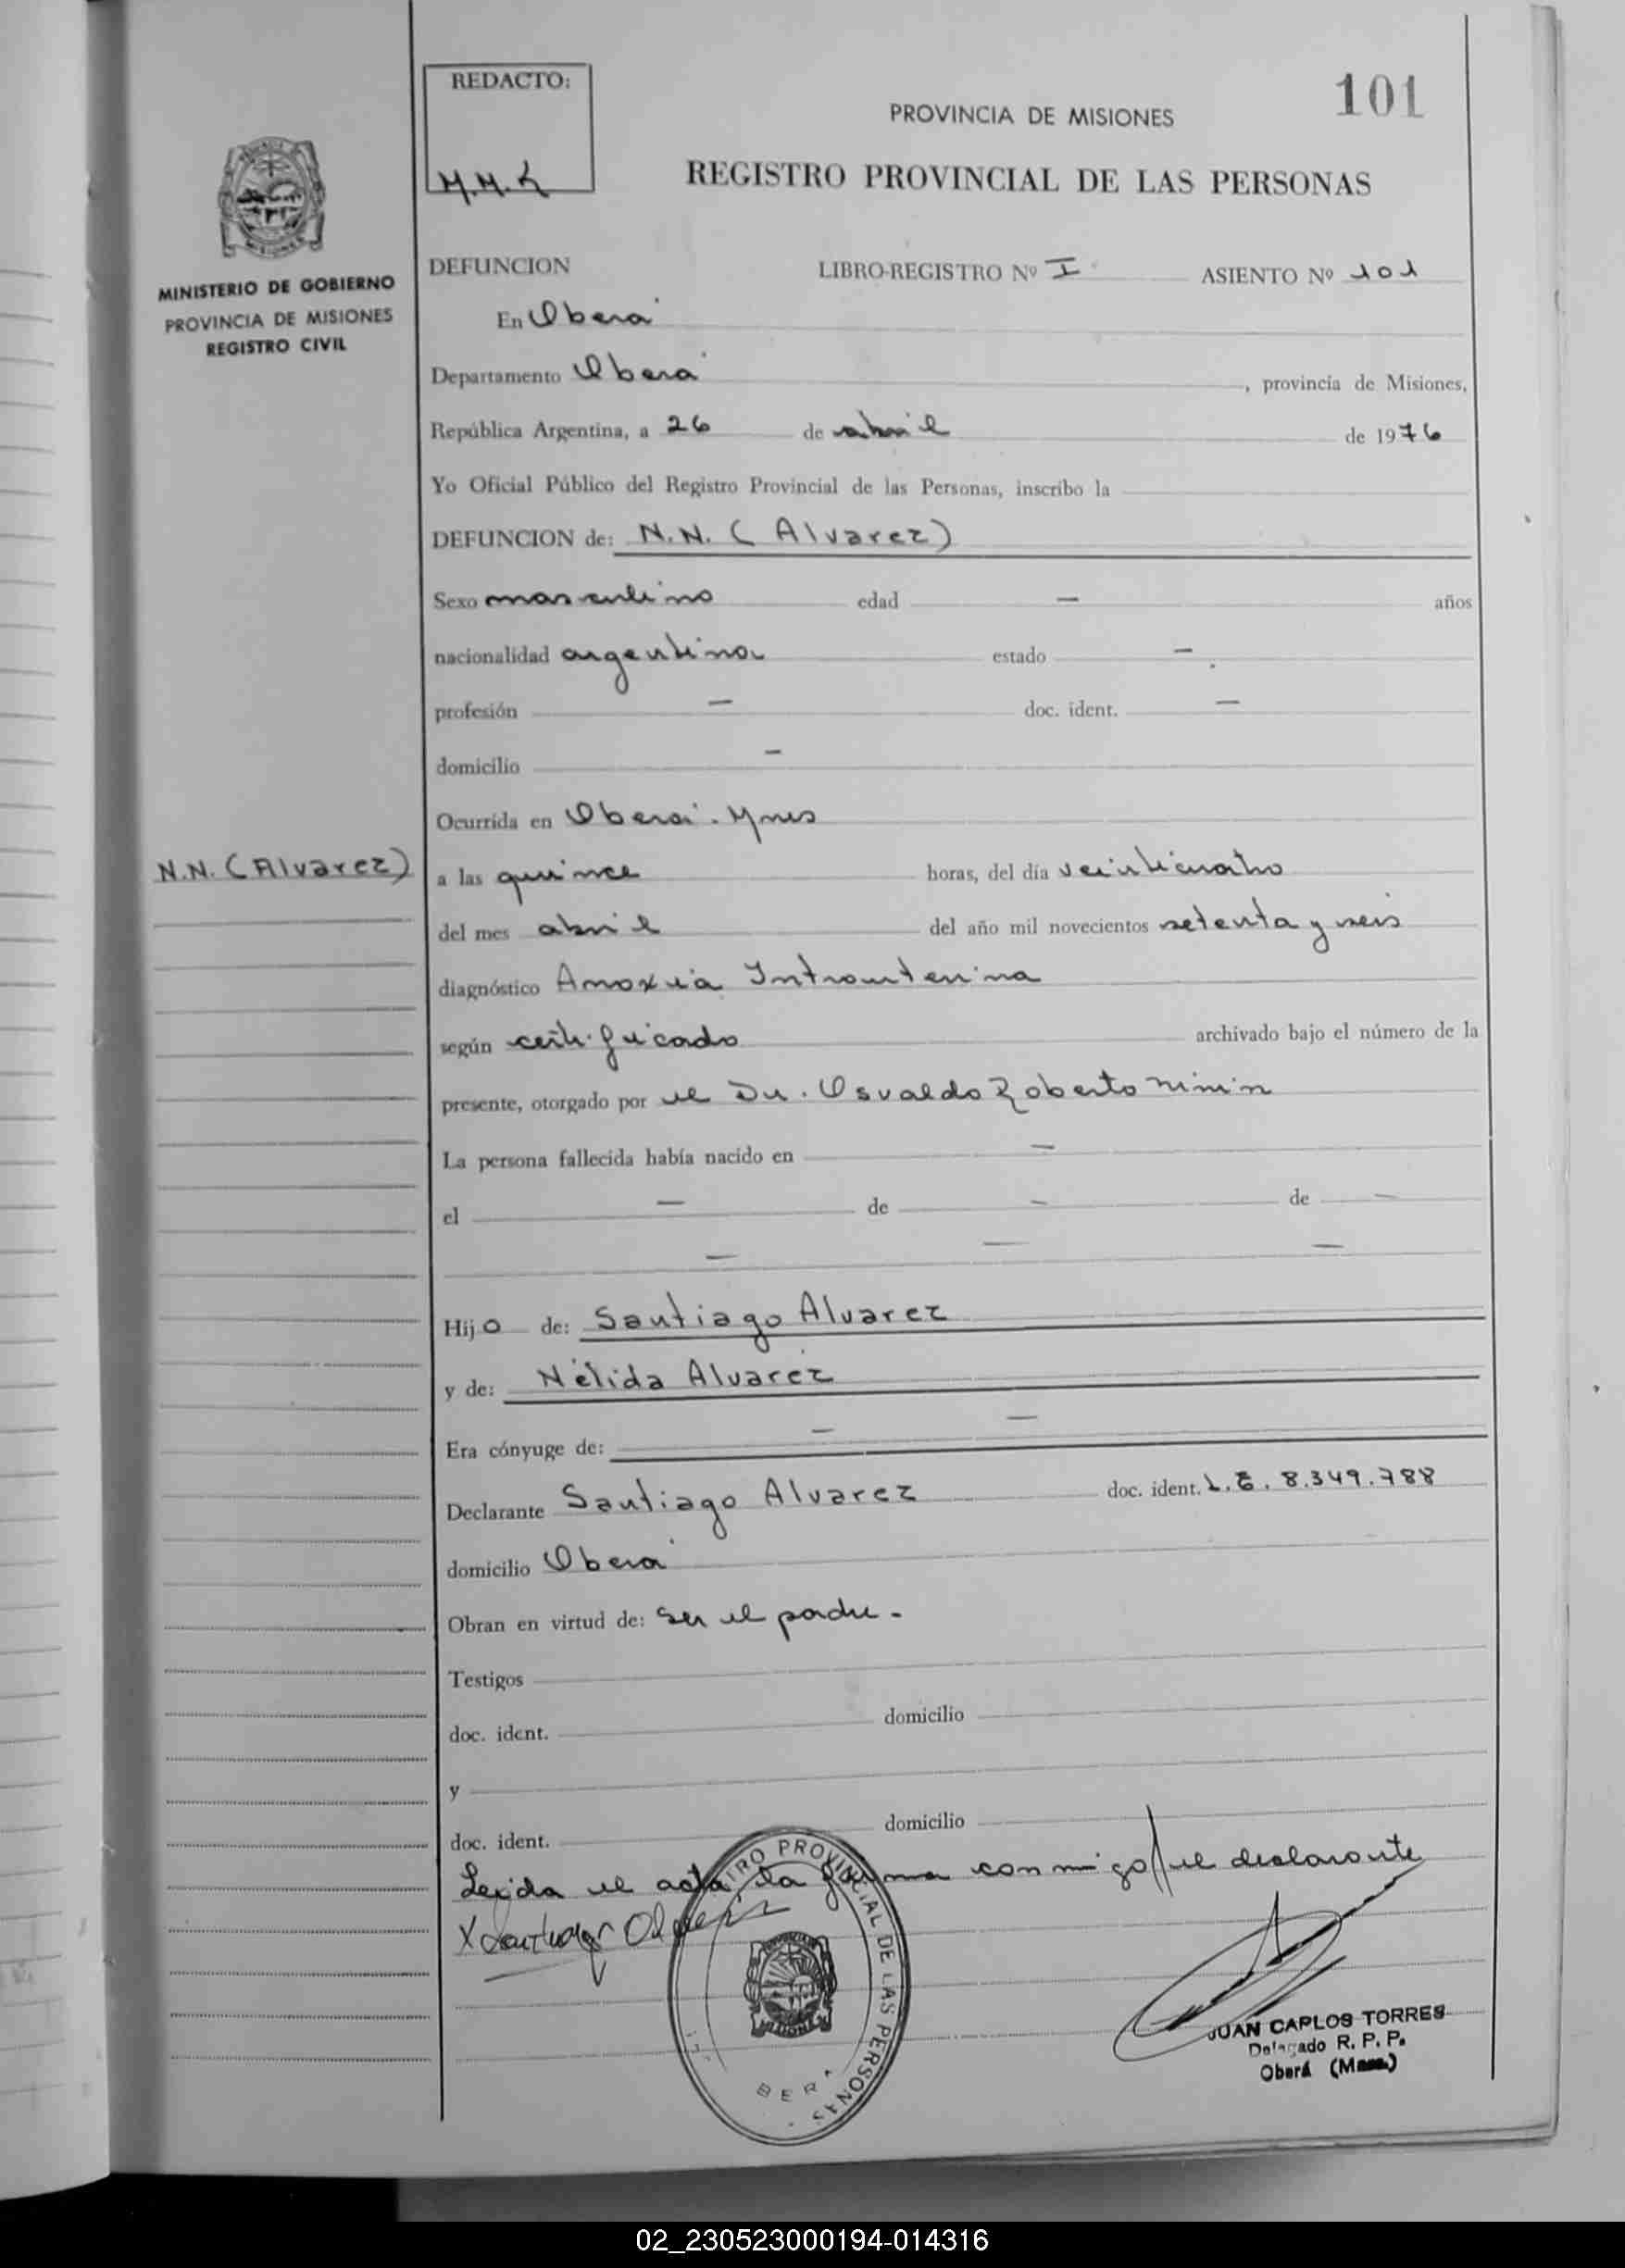 REDACTO:
M.M.K
101
PROVINCIA DE MISIONES
REGISTRO PROVINCIAL DE LAS PERSONAS
MISIONES
MINISTERIO DE GOBIERNO
PROVINCIA DE MISIONES
REGISTRO CIVIL
DEFUNCION LIBRO-REGISTRO Nº I ASIENTO Nº 101
En Oberá
Departamento Oberá , provincia de Misiones,
República Argentina, a 26 de abril de 1976
Yo Oficial Público del Registro Provincial de las Personas, inscribo la
DEFUNCION de: N.N. (Alvarez)
Sexo masculino edad — años
nacionalidad argentina estado —
profesión — doc. ident. —
domicilio —
Ocurrida en Oberá. Mnes
N.N. (Alvarez)
a las quince horas, del día veinticuatro
del mes abril del año mil novecientos setenta y seis
diagnóstico Anoxia Intrauterina
según certificado archivado bajo el número de la
presente, otorgado por el Dr. Osvaldo Roberto
La persona fallecida había nacido en —
el — de — de —
— — —
Hijo de: Santiago Alvarez
y de: Nélida Alvarez
Era cónyuge de: — —
Declarante Santiago Alvarez doc. ident. L.E. 8.349.788
domicilio Oberá
Obran en virtud de: Ser el padre -
Testigos
doc. ident. domicilio
y
doc. ident. domicilio
Leida el acta, la firma conmigo el declarante
X Santiago Alvarez
REGISTRO PROVINCIAL DE LAS PERSONAS
MISIONES
OBERA
JUAN CARLOS TORRES
Delegado R. P. P.
Oberá (Mnes.)
02_230523000194-014316